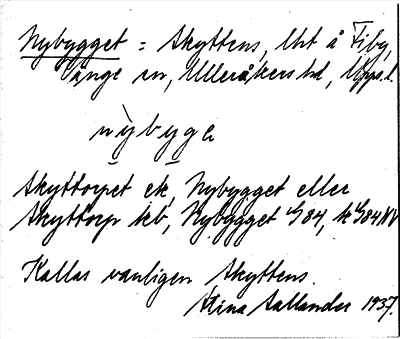 Nybygget = Skyttens, lht å Fiby,
Vänge sn, Ulleråkers hd, Upps. l.
nỳbyge
Skyttorpet ek, Nybygget eller
Skyttorp kb, Nybygget G 84, k G84NV
Kallas vanligen Skyttens.
Stina Sallander 1937.